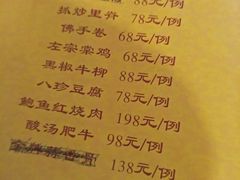 88元/例
抓炒里脊 78元/例
佛手卷 68元/例
左宗棠鸡 88元/例
黑椒牛柳 88元/例
八珍豆腐 78元/例
鲍鱼红烧肉 198元/例
酸汤肥牛 98元/例
138元/例